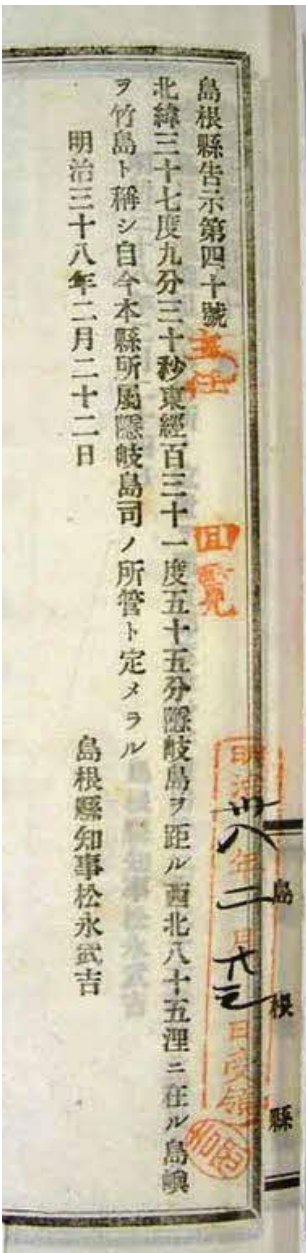 島根縣告示第四十號
主任
回覽
北緯三十七度九分三十秒東經百三十一度五十五分隱岐島ヲ距ル西北八十五浬ニ在ル島嶼
ヲ竹島ト稱シ自今本縣所屬隱岐島司ノ所管ト定メラル
明治三十八年二月二十二日
島根縣知事松永武吉
明治卅八年二月 日受領
島根縣